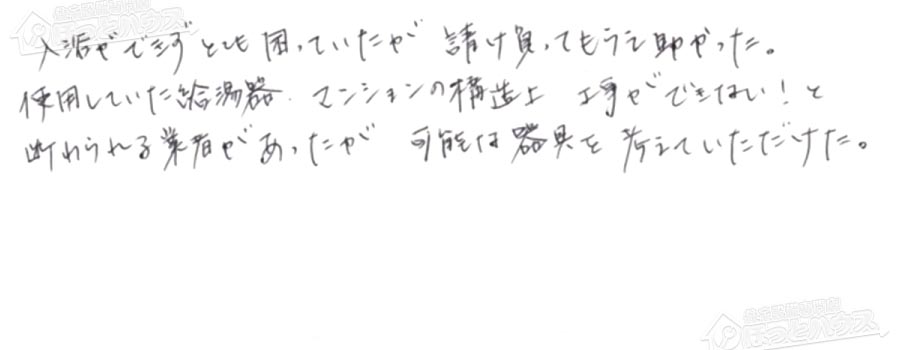 入浴ができずとても困っていたが 請け負ってもらえ助かった。
使用していた給湯器、マンションの構造上 工事ができない!と
断わられる業者があったが 可能な器具を考えていただけた。
ほっとハウス
ほっとハウス